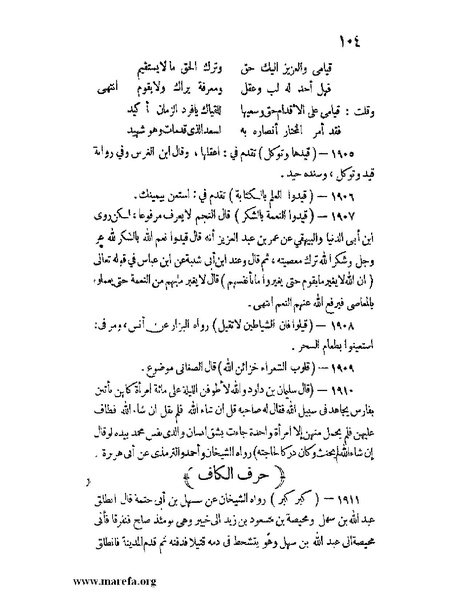 ١٠٤
قيامى والعزيز اليك حق وترك الحق مالا يستقيم
فهل أحد له لب وعقل ومعرفة يراك ولا يقوم انتهى
وقلت : قيامي على الأقدام حق وسعيها للقياك يا فرد الزمان أكيد
فقد أمر المختار أنصاره به لسعد الذى قد مات وهو شهيد
١٩٠٥ – (قيدها وتوكل) تقدم في : اعقلها ، وقال ابن الغرس وفي رواية
قيد وتوكل ، وسنده جيد .
١٩٠٦ – (قيدوا العلم بالكتابة) تقدم في : استعن بيمينك .
١٩٠٧ – (قيدوا النعمة بالشكر) قال النجم لا يعرف مرفوعا ، لكن روى
ابن أبى الدنيا والبيهقي عن عمر بن عبد العزيز أنه قال قيدوا نعم الله بالشكر لله عز
وجل وشكر الله ترك معصيته ، ثم قال وعند ابن أبى شيبة عن ابن عباس في قوله تعالى
(ان الله لا يغير ما بقوم حتى يغيروا ما بأنفسهم) قال لا يغير ما بهم من النعمة حتى يعملوا
بالمعاصى فيرفع الله عنهم النعم انتهى .
١٩٠٨ – (قيلوا فان الشياطين لا تقيل) رواه البزار عن أنس ، ومر في :
استعينوا بطعام السحر .
١٩٠٩ – (قلوب الشعراء خزائن الله) قال الصغانى موضوع .
١٩١٠ – (قال سليمان بن داود والله لأطوفن الليلة على مائة امرأة كلهن يأتين
بفارس يجاهد فى سبيل الله فقال له صاحبه قل ان شاء الله فلم يقل ان شاء الله فطاف
عليهن فلم يحمل منهن إلا امرأة واحدة جاءت بشق انسان والذى نفس محمد بيده لو قال
إن شاء الله لم يحنث وكان دركا لحاجته) رواه الشيخان وأحمد والترمذى عن أبى هريرة .
﴿ حرف الكاف ﴾
١٩١١ – (كبر كبر) رواه الشيخان عن سهل بن أبى حثمة قال انطلق
عبد الله بن سهل ومحيصة بن مسعود بن زيد الى خيبر وهى يومئذ صلح فتفرقا فأتى
محيصة الى عبد الله بن سهل وهو يتشحط فى دمه قتيلا فدفنه ثم قدم المدينة فانطلق
www.marefa.org